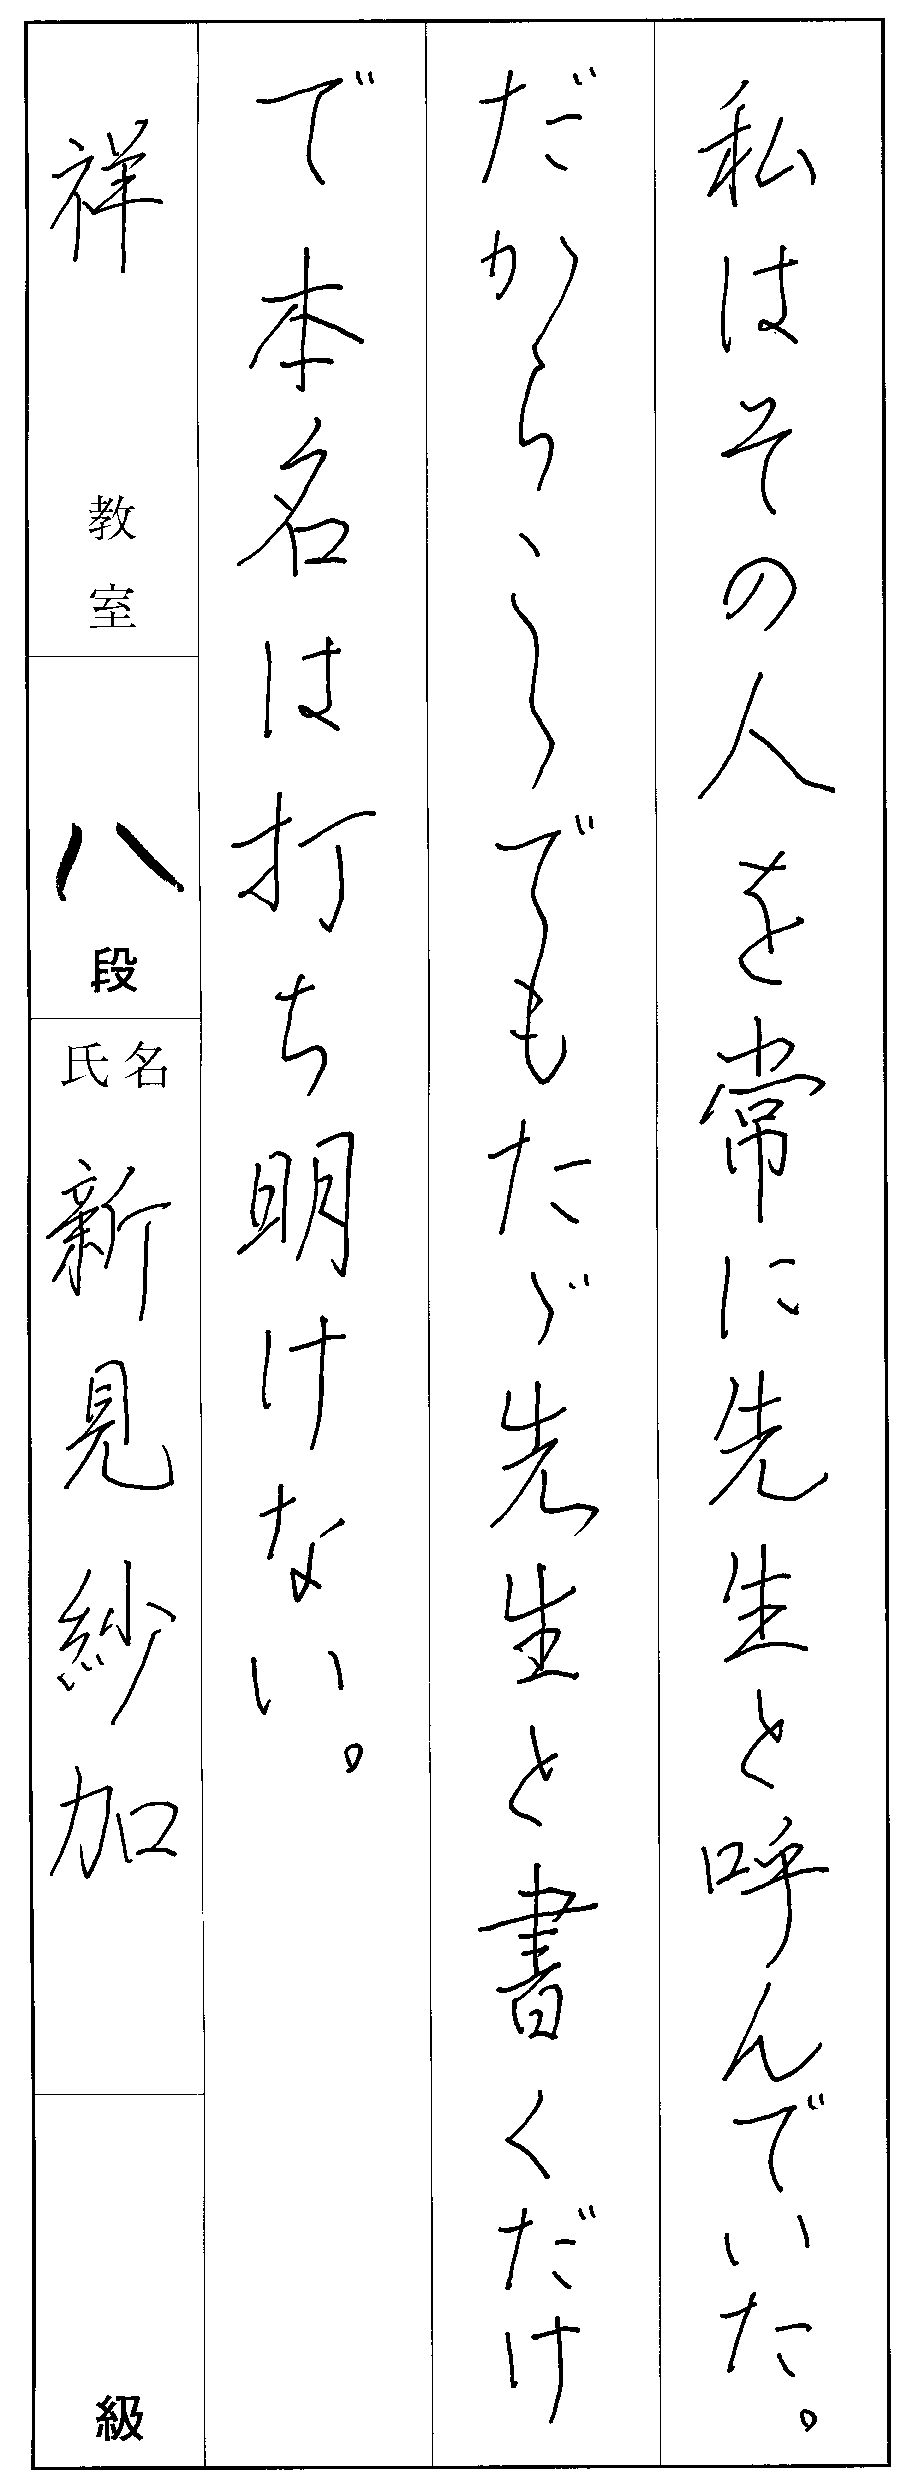 私はその人を常に先生と呼んでいた。
だから、こゝでもたゞ先生と書くだけ
で本名は打ち明けない。
祥 教室 八段 氏名 新見紗加 級